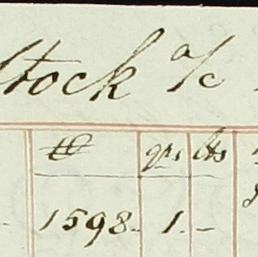 Stock a/c
℔ qrs lbs
1598 - 1 -